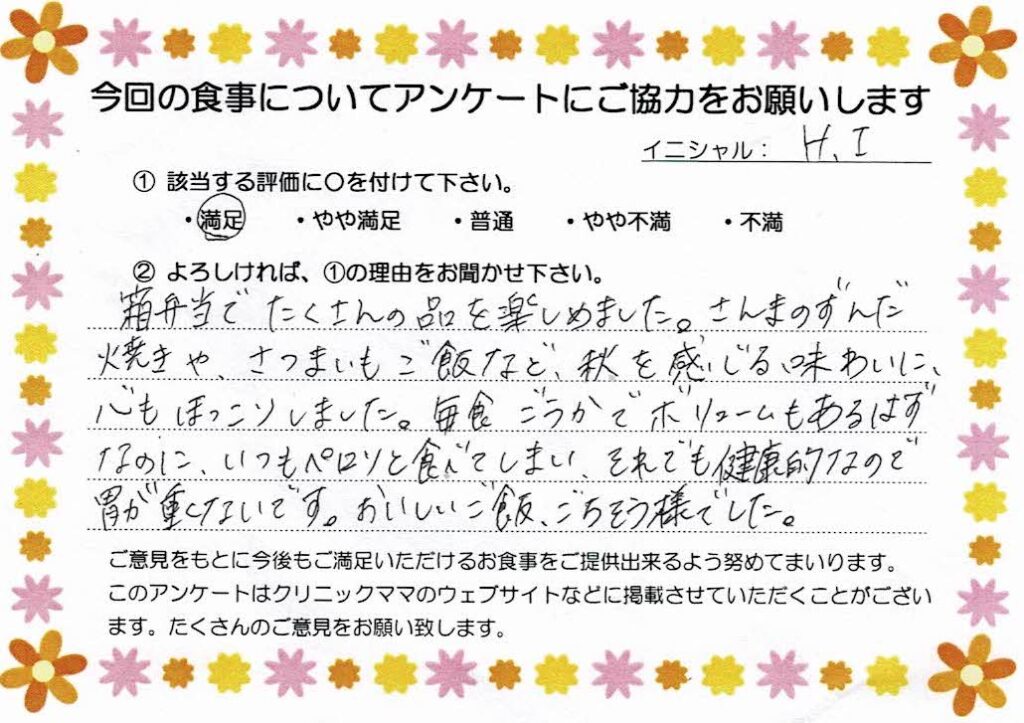 今回の食事についてアンケートにご協力をお願いします
イニシャル： H.I
① 該当する評価に〇を付けて下さい。
・満足 ・やや満足 ・普通 ・やや不満 ・不満
② よろしければ、①の理由をお聞かせ下さい。
箱弁当でたくさんの品を楽しめました。さんまのずんだ
焼きや、さつまいもご飯など、秋を感じる味わいに、
心もほっこりしました。毎食ごうかでボリュームもあるはず
なのに、いつもペロリと食べてしまい、それでも健康的なので
胃が重くないです。おいしいご飯、ごちそう様でした。
ご意見をもとに今後もご満足いただけるお食事をご提供出来るよう努めてまいります。
このアンケートはクリニックママのウェブサイトなどに掲載させていただくことがござい
ます。たくさんのご意見をお願い致します。